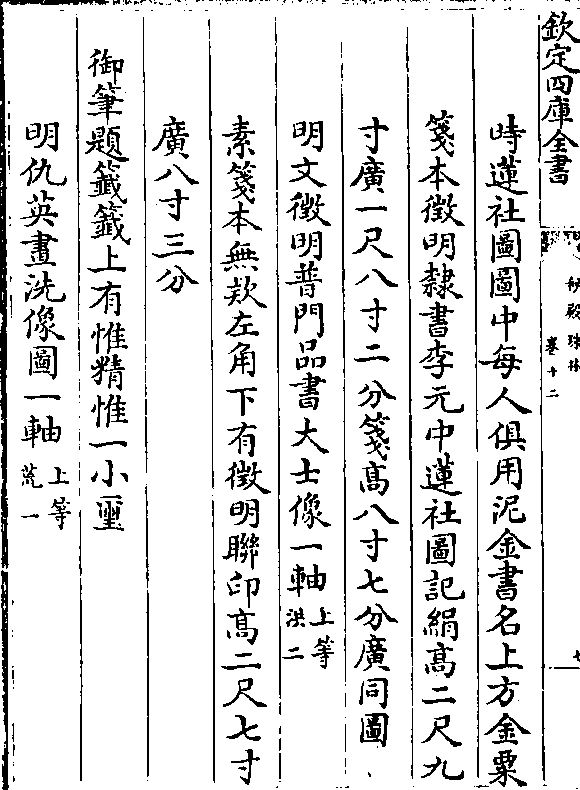 欽定四庫全書
秘殿珠林
卷十二
七
時蓮社圖圖中每人俱用泥金書名上方金粟
箋本徵明隸書李元中蓮社圖記絹高二尺九
寸廣一尺八寸二分箋高八寸七分廣同圖
明文徵明普門品書大士像一軸上等洪二
素箋本無欵左角下有徵明聯印高二尺七寸
廣八寸三分
御筆題籤籤上有惟精惟一小璽
明仇英畫洗像圖一軸上等荒一